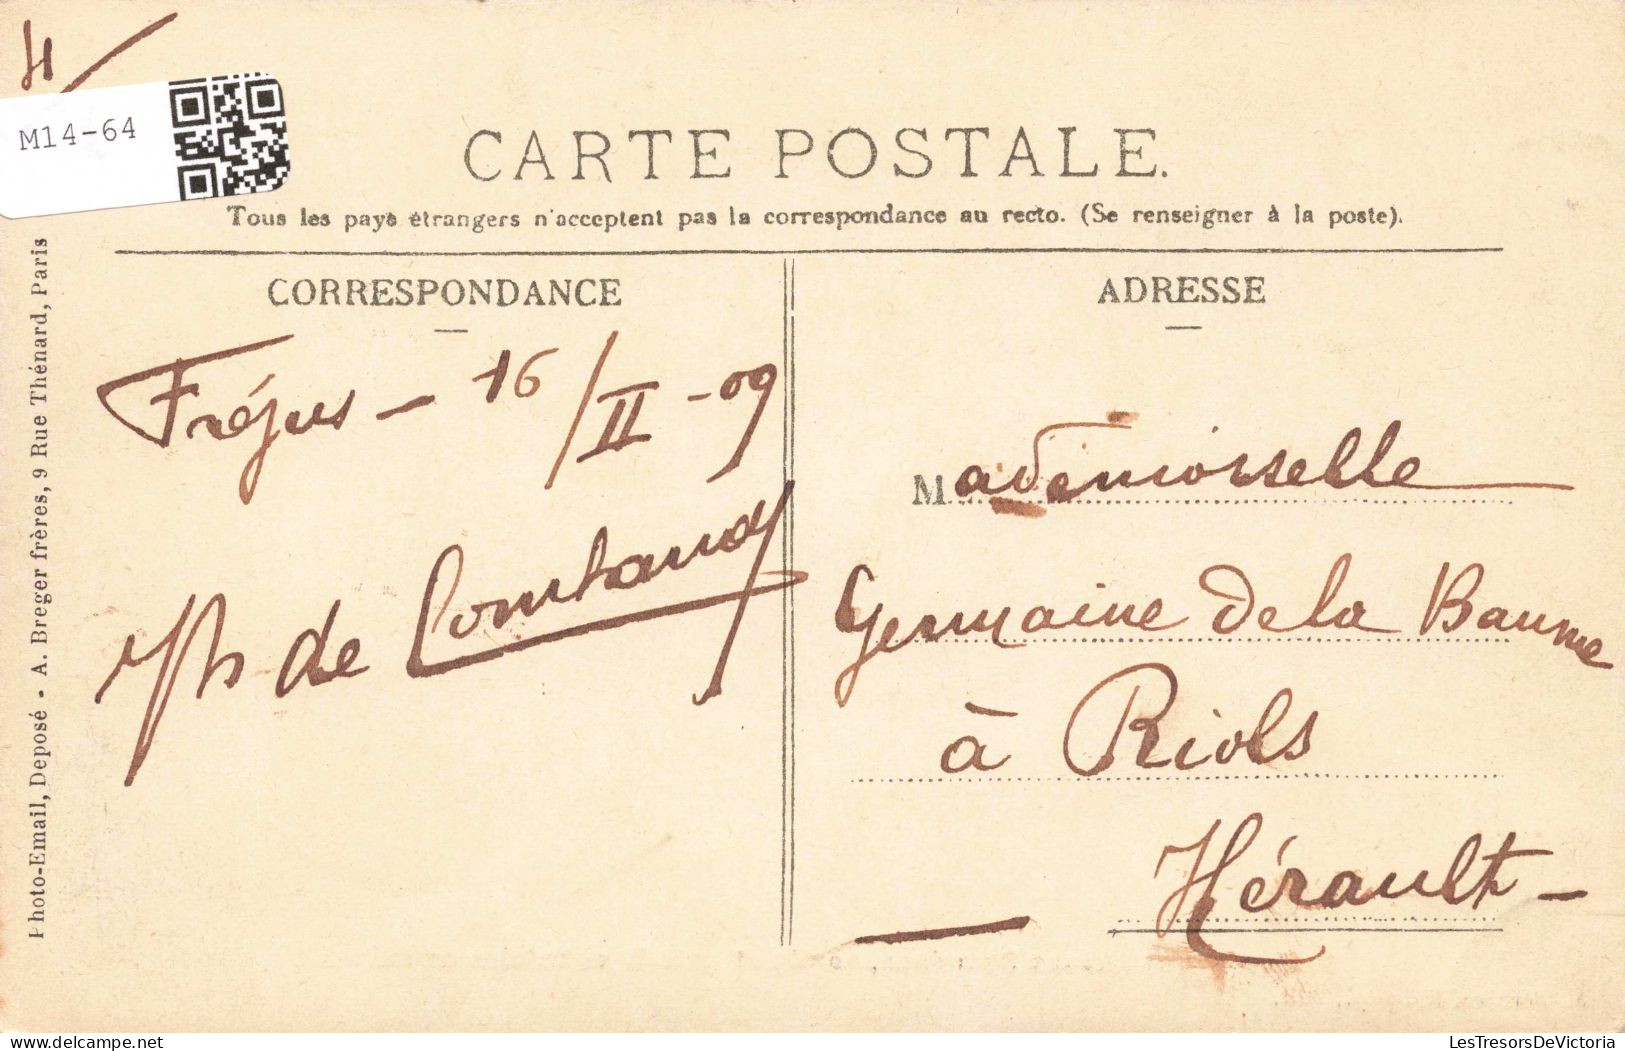 H
M14-64
CARTE POSTALE.
Tous les pays étrangers n'acceptent pas la correspondance au recto. (Se renseigner à la poste).
CORRESPONDANCE
Fréjus - 16/II-09
de
ADRESSE
Mademoiselle
Germaine de la Baume
à Riols
Hérault -
Photo-Email, Deposé - A. Breger frères, 9 Rue Thénard, Paris
LesTresorsDeVictoria
delcampe.net